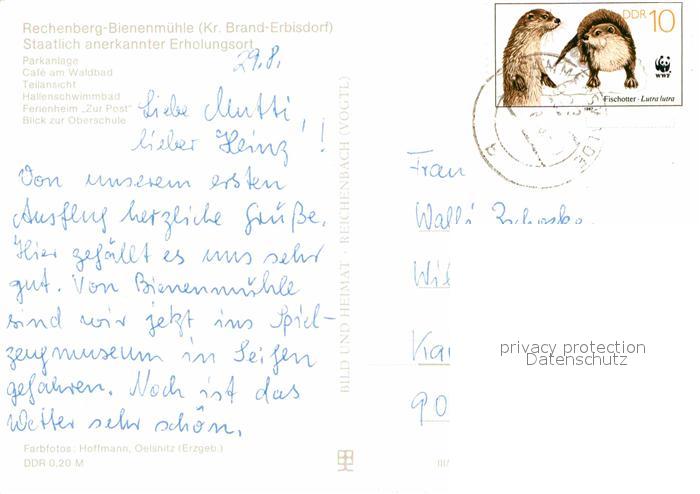 Rechenberg-Bienenmühle (Kr. Brand-Erbisdorf)
Staatlich anerkannter Erholungsort
Parkanlage
Café am Waldbad
Teilansicht
Hallenschwimmbad
Ferienheim „Zur Post“
Blick zur Oberschule
29.8.
Liebe Mutti,
lieber Heinz!
Von unserem ersten
Ausflug herzliche Grüße.
Hier gefällt es uns sehr
gut. Von Bienenmühle
sind wir jetzt ins Spiel-
zeugmuseum in Seifen
gefahren. Noch ist das
Wetter sehr schön.
Farbfotos: Hoffmann, Oelsnitz (Erzgeb.)
DDR 0,20 M
BILD UND HEIMAT · REICHENBACH (VOGTL)
III/
DDR 10
WWF
Fischotter · Lutra lutra
Frau
Wil
Kar
90
privacy protection
Datenschutz